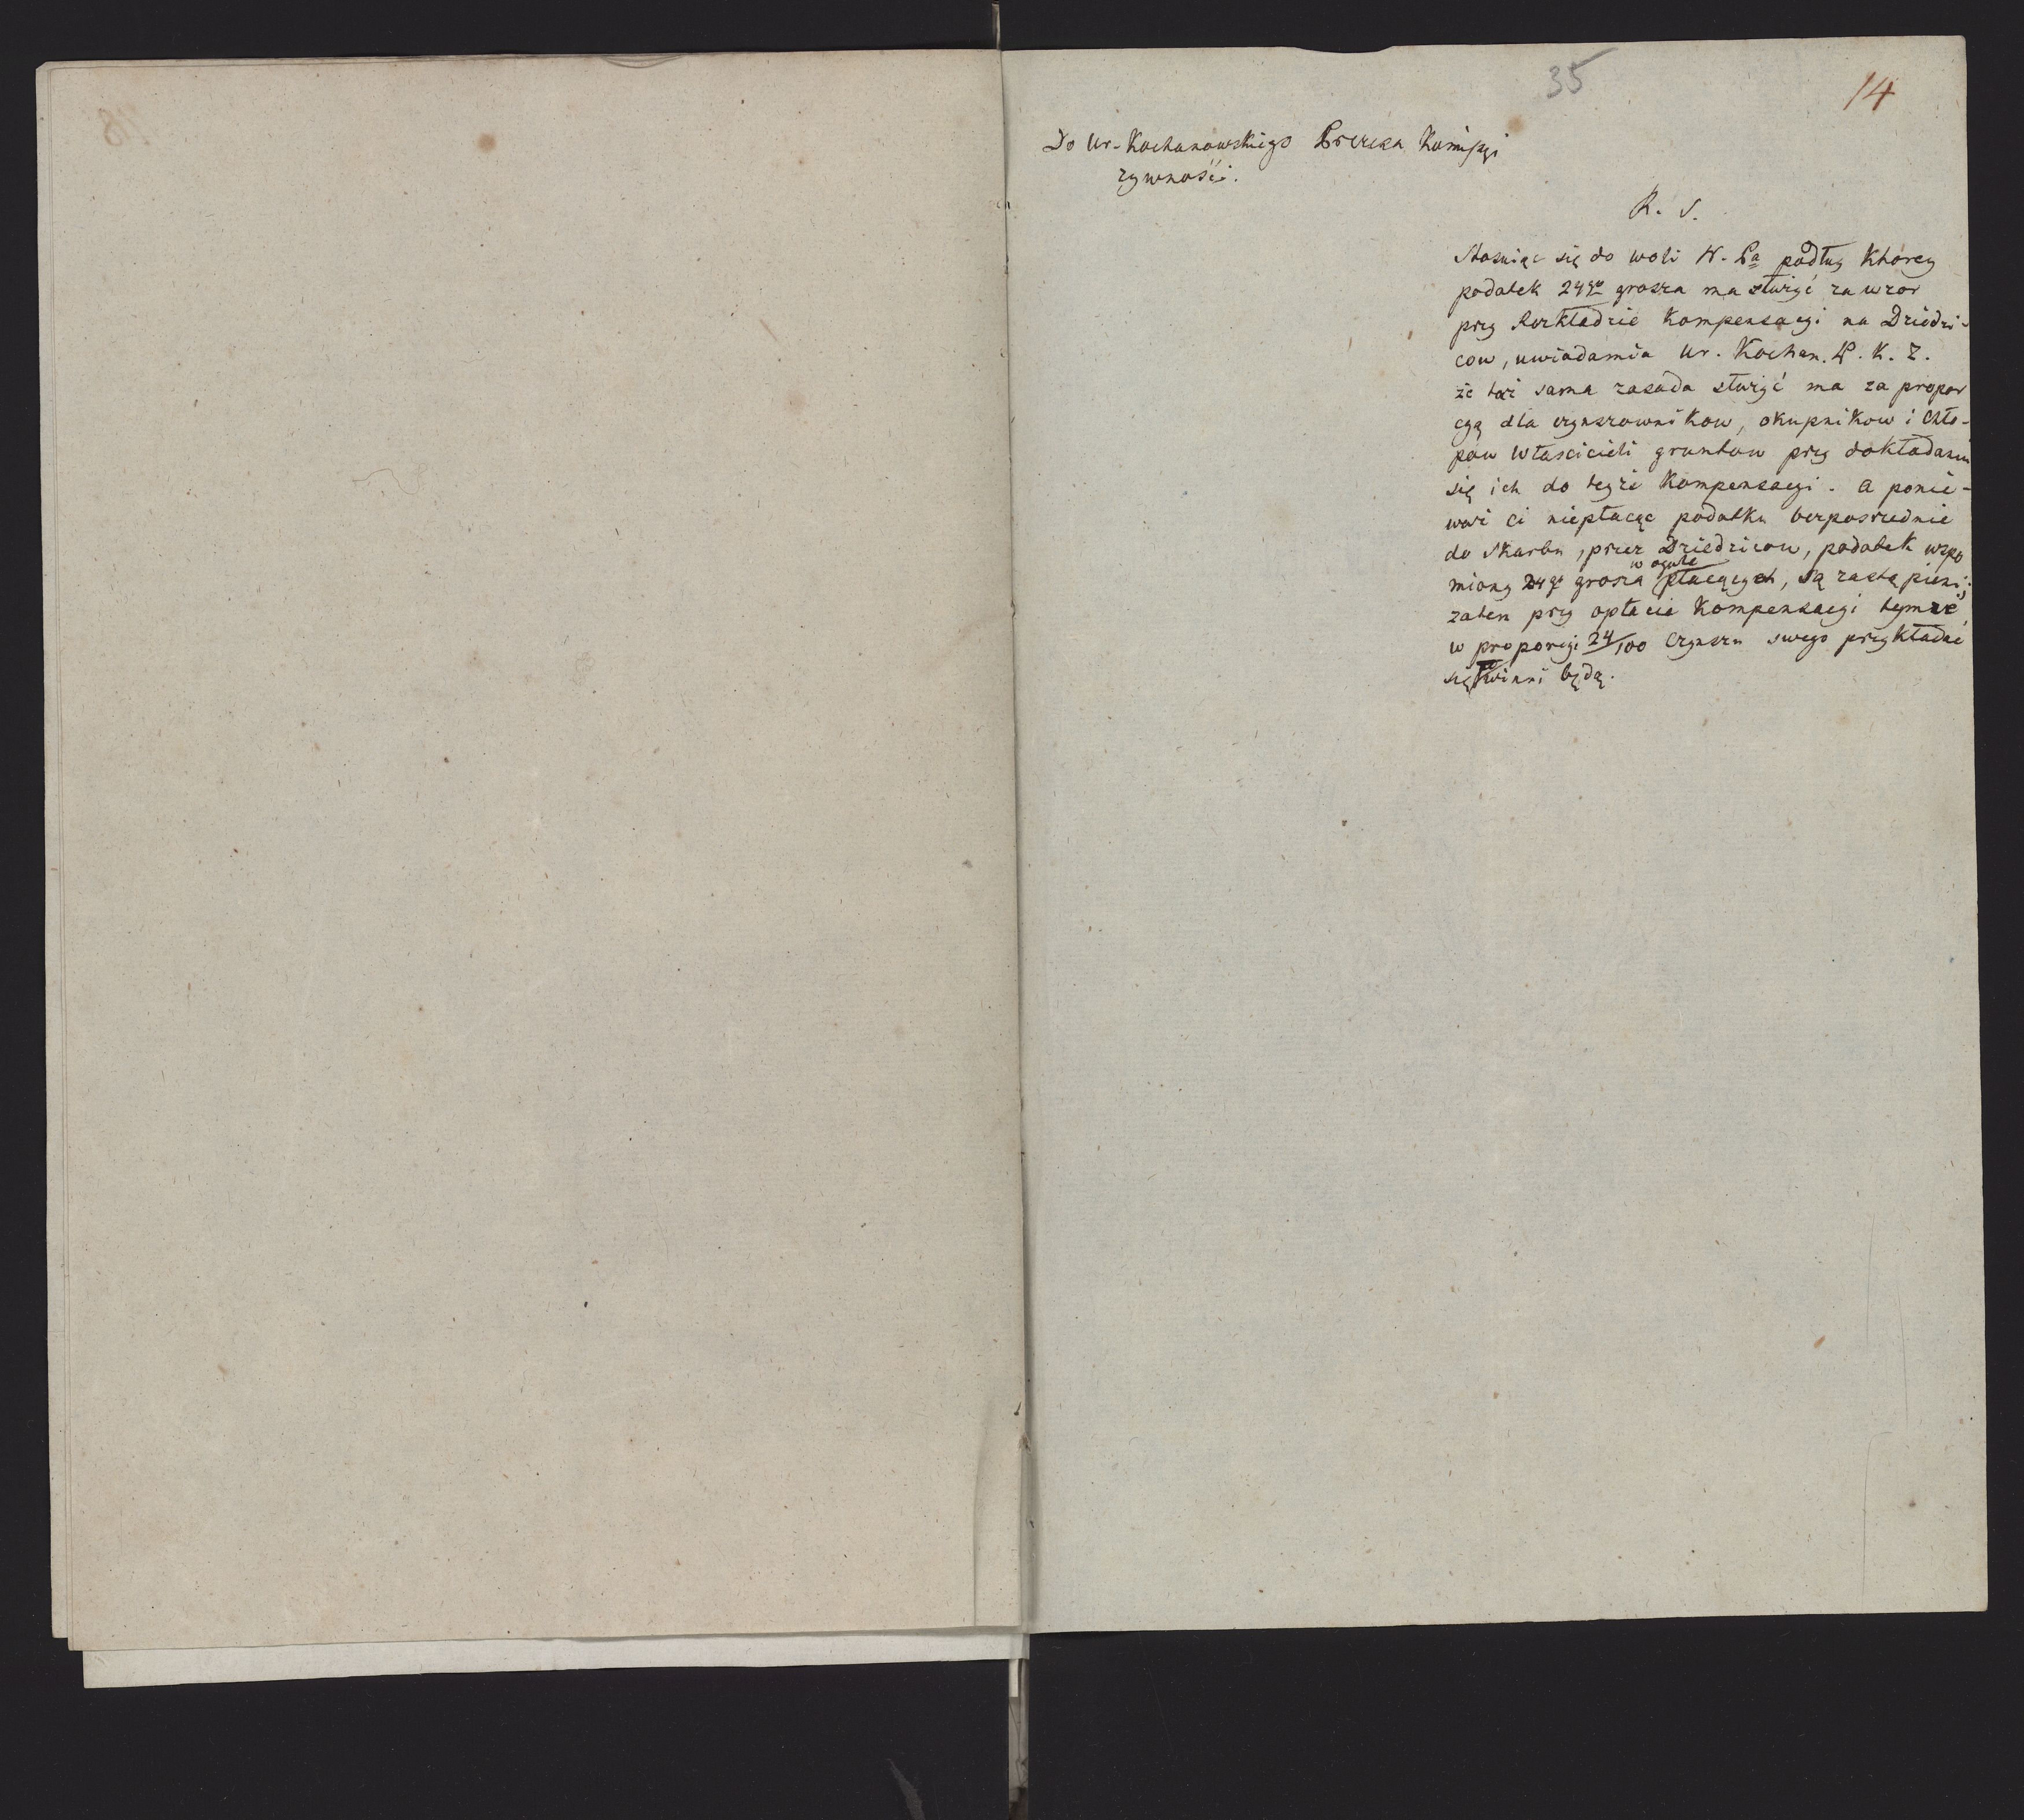 35
14
Do Ur. Kochanowskiego Prezesa Komissyi
zywności.
R. S.
Stosuiąc się do woli N. Pa podług którey
podatek 24go grosza ma służyć za wzor
przy Rozkładzie Kompensacyi na Dziedzi-
cow, uwiadamia Ur. Kochan. P. K. Z.
że taż sama zasada służyć ma za propor
cyą dla czynszownikow, okupnikow i chło-
pow właścicieli gruntow przy dokładaniu
się ich do teyże Kompensacyi. a ponie-
waż ci niepłacąc podatku bezpośrednie
do Skarbu, przez Dziedzicow, podatek wspo
miony 24go grosza w ogule płacących, są
zatem przy opłacie Kompensacyi tymże,
w proporcyi 24/100 Czynszu swego przykładać
się powinni będą.